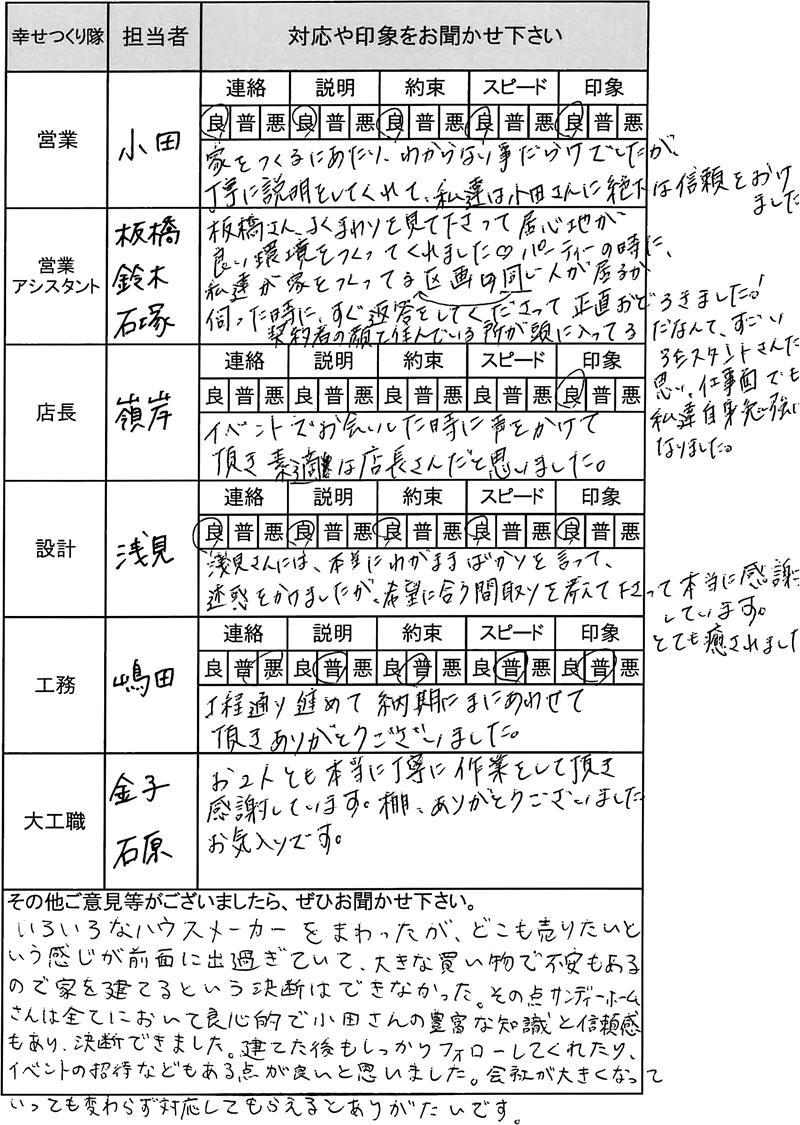 幸せつくり隊 担当者 対応や印象をお聞かせ下さい
営業 小田
連絡 説明 約束 スピード 印象
良 普 悪 良 普 悪 良 普 悪 良 普 悪 良 普 悪
家をつくるにあたり、わからない事だらけでしたが、
丁寧に説明をしてくれて、私達は小田さんに絶大な信頼をおけ
ました
営業
アシスタント
板橋
鈴木
石塚
板橋さん、よくまわりを見て下さって居心地が
良い環境をつくってくれました♡パーティーの時に、
私達が家をつくってる区画の同じ人が居るか
伺った時に、すぐ返答をしてくださって正直おどろきました!
契約者の顔と住んでいる所が頭に入ってる だなんて、すごい
アシスタントさんだ
思い、仕事面でも
私達自身勉強に
なりました。
店長 嶺岸
連絡 説明 約束 スピード 印象
良 普 悪 良 普 悪 良 普 悪 良 普 悪 良 普 悪
イベントでお会いした時に声をかけて
頂き素敵な店長さんだと思いました。
設計 浅見
連絡 説明 約束 スピード 印象
良 普 悪 良 普 悪 良 普 悪 良 普 悪 良 普 悪
浅見さんには、本当にわがままばかりを言って、
迷惑をかけましたが、希望に合う間取りを考えて下さって本当に感謝
しています。
とても癒されました
工務 嶋田
連絡 説明 約束 スピード 印象
良 普 悪 良 普 悪 良 普 悪 良 普 悪 良 普 悪
工程通り進めて納期にまにあわせて
頂きありがとうございました。
大工職
金子
石原
お2人とも本当に丁寧に作業をして頂き
感謝しています。棚、ありがとうございました
お気入りです。
その他ご意見等がございましたら、ぜひお聞かせ下さい。
いろいろなハウスメーカーをまわったが、どこも売りたいと
いう感じが前面に出過ぎていて、大きな買い物で不安もある
ので家を建てるという決断はできなかった。その点サンディーホーム
さんは全てにおいて良心的で小田さんの豊富な知識と信頼感
もあり、決断できました。建てた後もしっかりフォローしてくれたり、
イベントの招待などもある点が良いと思いました。会社が大きくなって
いっても変わらず対応してもらえるとありがたいです。